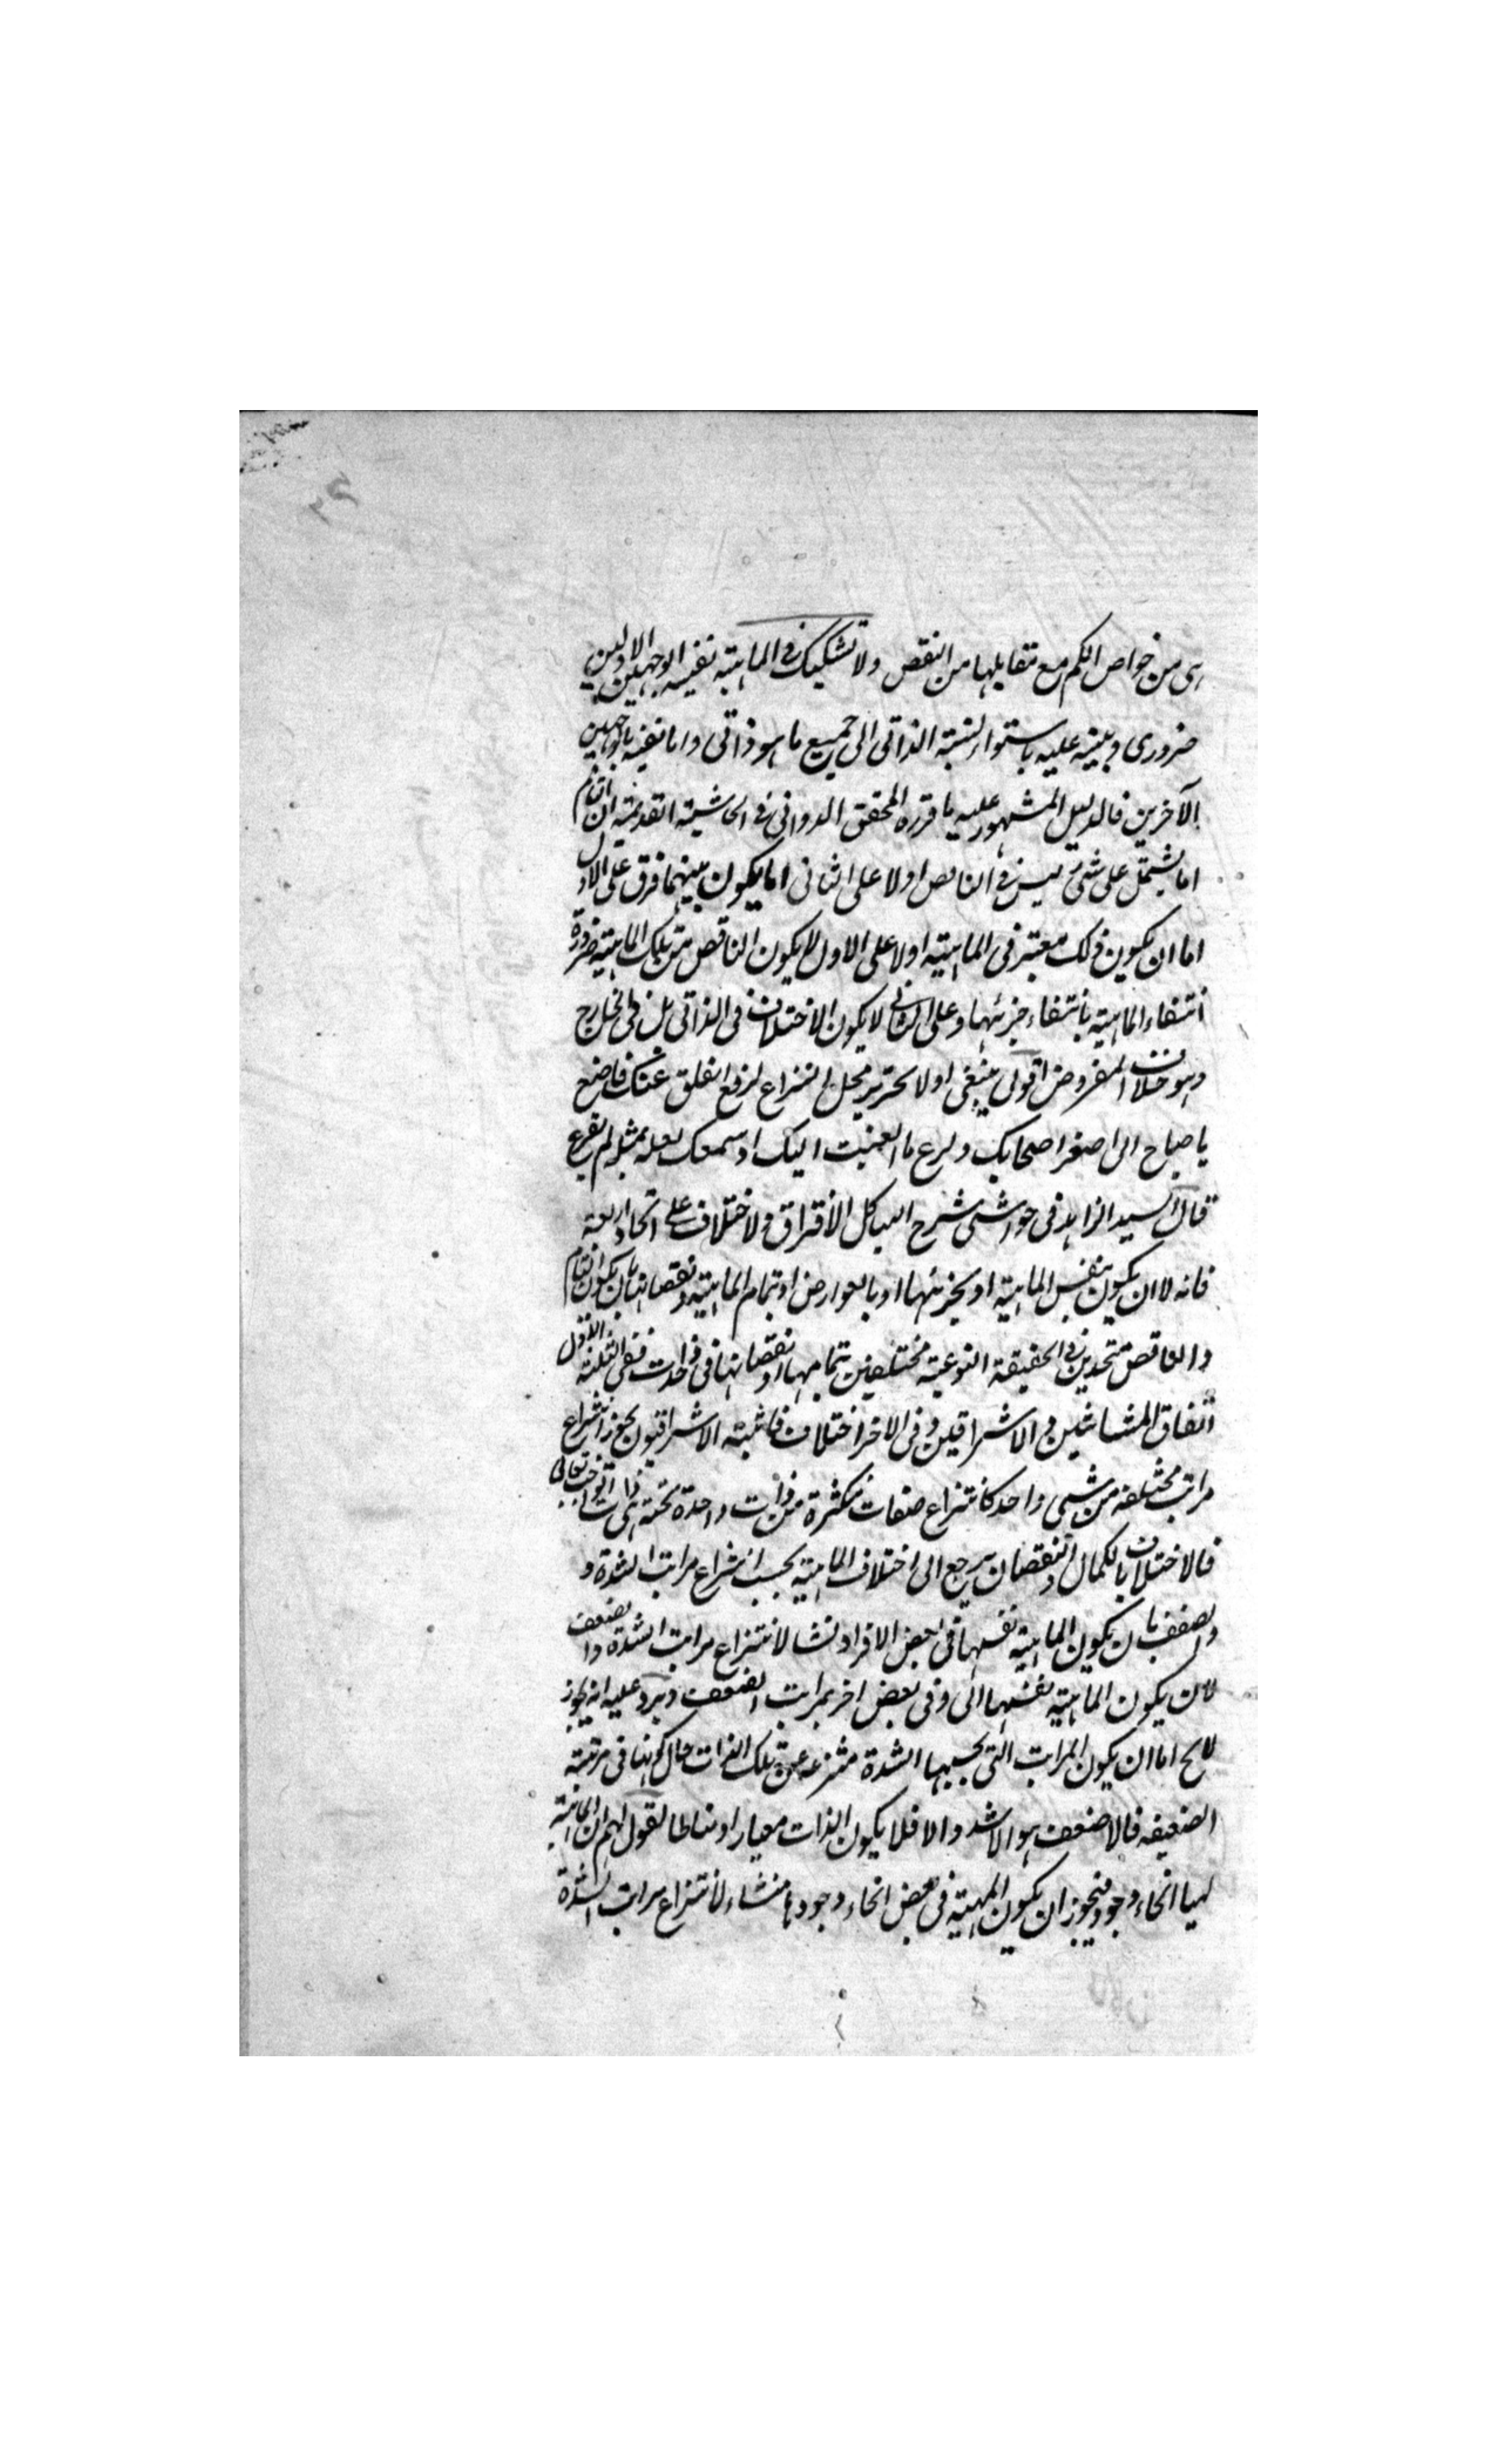 هى من خواص الكم مع تقابلها من النقص ولا تشكيك فى الماهية نفيه بالوجهين الاولين
ضرورى وينبه عليه باستواء نسبة الذاتى الى جميع ما هو ذاتى واما نفيه بالوجهين
الآخرين فالدليل المشهور عليه ما قرره المحقق الدوانى فى الحاشية القديمة ان التام
اما يشتمل على شئ ليس فى الناقص اولا على الثانى اما يكون بينهما فرق على الاول
اما ان يكون ذلك معتبر فى الماهية اولا على الاول لا يكون الناقص من تلك الماهية ضرورة
انتفاء الماهية بانتفاء جزئها وعلى الثانى لا يكون الاختلاف فى الذاتى بل فى الخارج
وهو خلاف المفروض اقول ينبغى اولا تحرير محل النزاع لرفع الغلق عنك فاضع
يا صاح الى اصغر اصحابك و ما اليك او سمعك لعله بمثله لم يقرع
قال السيد الزاهد فى حواشى شرح الهياكل الافتراق والاختلاف على انحاء اربعة
فانه لا ان يكون بنفس الماهية او بجزئها او بالعوارض او بتمام الماهية ونقصانها بان يكون التام
والناقص متحدين فى الحقيقة النوعية مختلفين بتمامها او نقصانها فى ذات ففى الثلثة الاول
اتفاق المشائين و الاشراقين وفى الاخر اختلاف فاثبته الاشراقيون بجواز انتزاع
مراتب مختلفة من شئ واحد كانتزاع صفات متكثرة من ذات واحدة تعالى
فالاختلاف بالكمال والنقصان يرجع الى اختلاف الماهية بحسب انتزاع مراتب الشدة و
والضعف بان يكون الماهية نفسها فى بعض الافراد منشا لانتزاع مراتب الشدة والضعف
لان يكون الماهية نفسها الى وفى بعض اخر بمراتب الضعف ويرد عليه انه يجوز
لا يخ اما ان يكون المراتب التى بحسبها الشدة منتزعة عن تلك الذات حال كونها فى مرتبة
الضعيفه فالاضعف هو الاشد والا فلا يكون الذات معيارا ومناطا لقول لهم ان الماهية
لهيا انحاء وجود فيجوز ان يكون المهية فى بعض انحاء وجودها منشاء لانتزاع مراتب الشدة